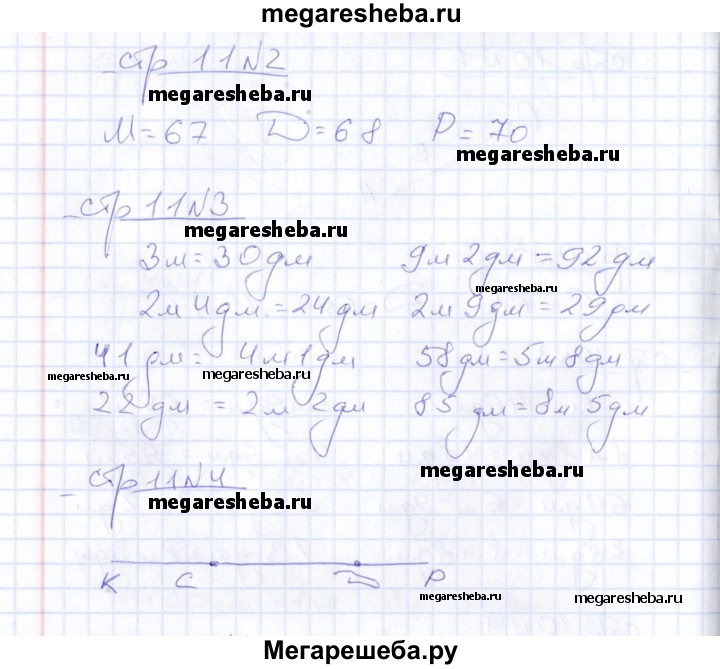 megaresheba.ru
стр 11 №2
megaresheba.ru
М=67 D=68 Р=70
megaresheba.ru
стр 11 №3
megaresheba.ru
3м=30дм 9м 2дм=92дм
megaresheba.ru
2м 4дм=24дм 2м 9дм=29дм
41дм= 4м1дм 58дм=5м8дм
megaresheba.ru megaresheba.ru
22дм=2м 2дм 85дм=8м 5дм
megaresheba.ru
стр 11 №4
megaresheba.ru
К С D Р
megaresheba.ru megaresheba.ru
Мегарешеба.ру